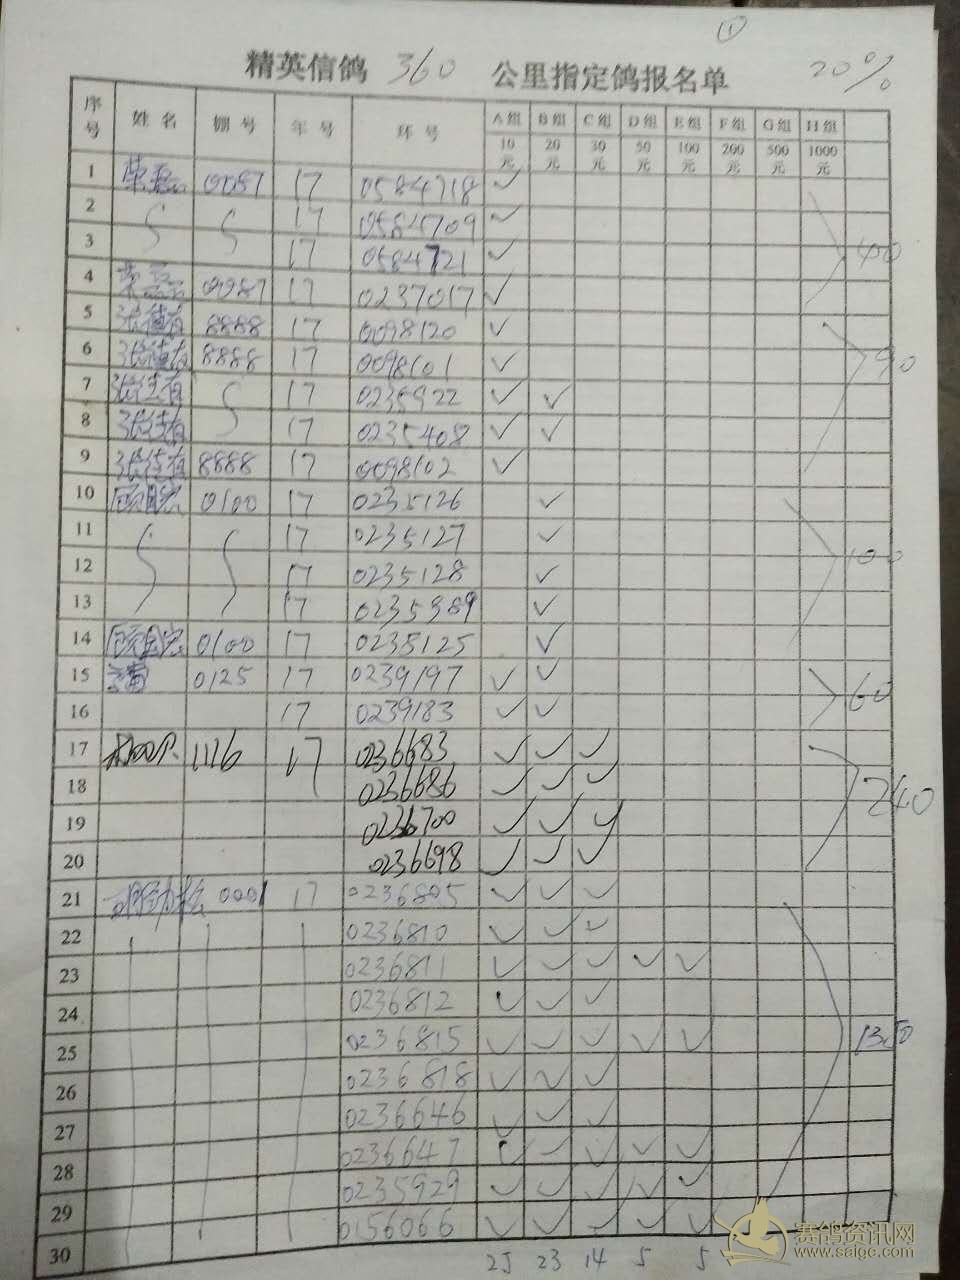 ①
精英信鸽 360 公里指定鸽报名单 20%
序号 姓名 棚号 年号 环号 A组 B组 C组 D组 E组 F组 G组 H组
10元 20元 30元 50元 100元 200元 500元 1000元
1 0087 17 0584718 ✓
2 17 0584709 ✓
3 17 0584721 ✓ 40
4 0087 17 0237017 ✓
5 8888 17 0098120 ✓
6 张德友 8888 17 0098101 ✓ 90
7 17 0235922 ✓ ✓
8 17 0235408 ✓ ✓
9 8888 17 0098102 ✓
10 0100 17 0235126 ✓
11 17 0235127 ✓
12 17 0235128 ✓ 100
13 17 0235989 ✓
14 0100 17 0235125 ✓
15 0125 17 0239197 ✓ ✓
16 17 0239183 ✓ ✓ 60
17 1116 17 0236683 ✓ ✓ ✓
18 0236686 ✓ ✓ ✓ 240
19 0236700 ✓ ✓ ✓
20 0236698 ✓ ✓ ✓
21 胡劲松 0001 17 0236805 ✓ ✓ ✓
22 0236810 ✓ ✓ ✓
23 0236811 ✓ ✓ ✓ ✓ ✓
24 0236812 ✓ ✓ ✓
25 0236815 ✓ ✓ ✓ ✓ ✓ 1350
26 0236818 ✓ ✓ ✓
27 0236646 ✓ ✓ ✓
28 0236647 ✓ ✓ ✓ ✓ ✓
29 0235929 ✓ ✓ ✓ ✓ ✓
30 0156066 ✓ ✓ ✓ ✓ ✓
25 23 14 5 5
赛鸽资讯网
www.saigc.com